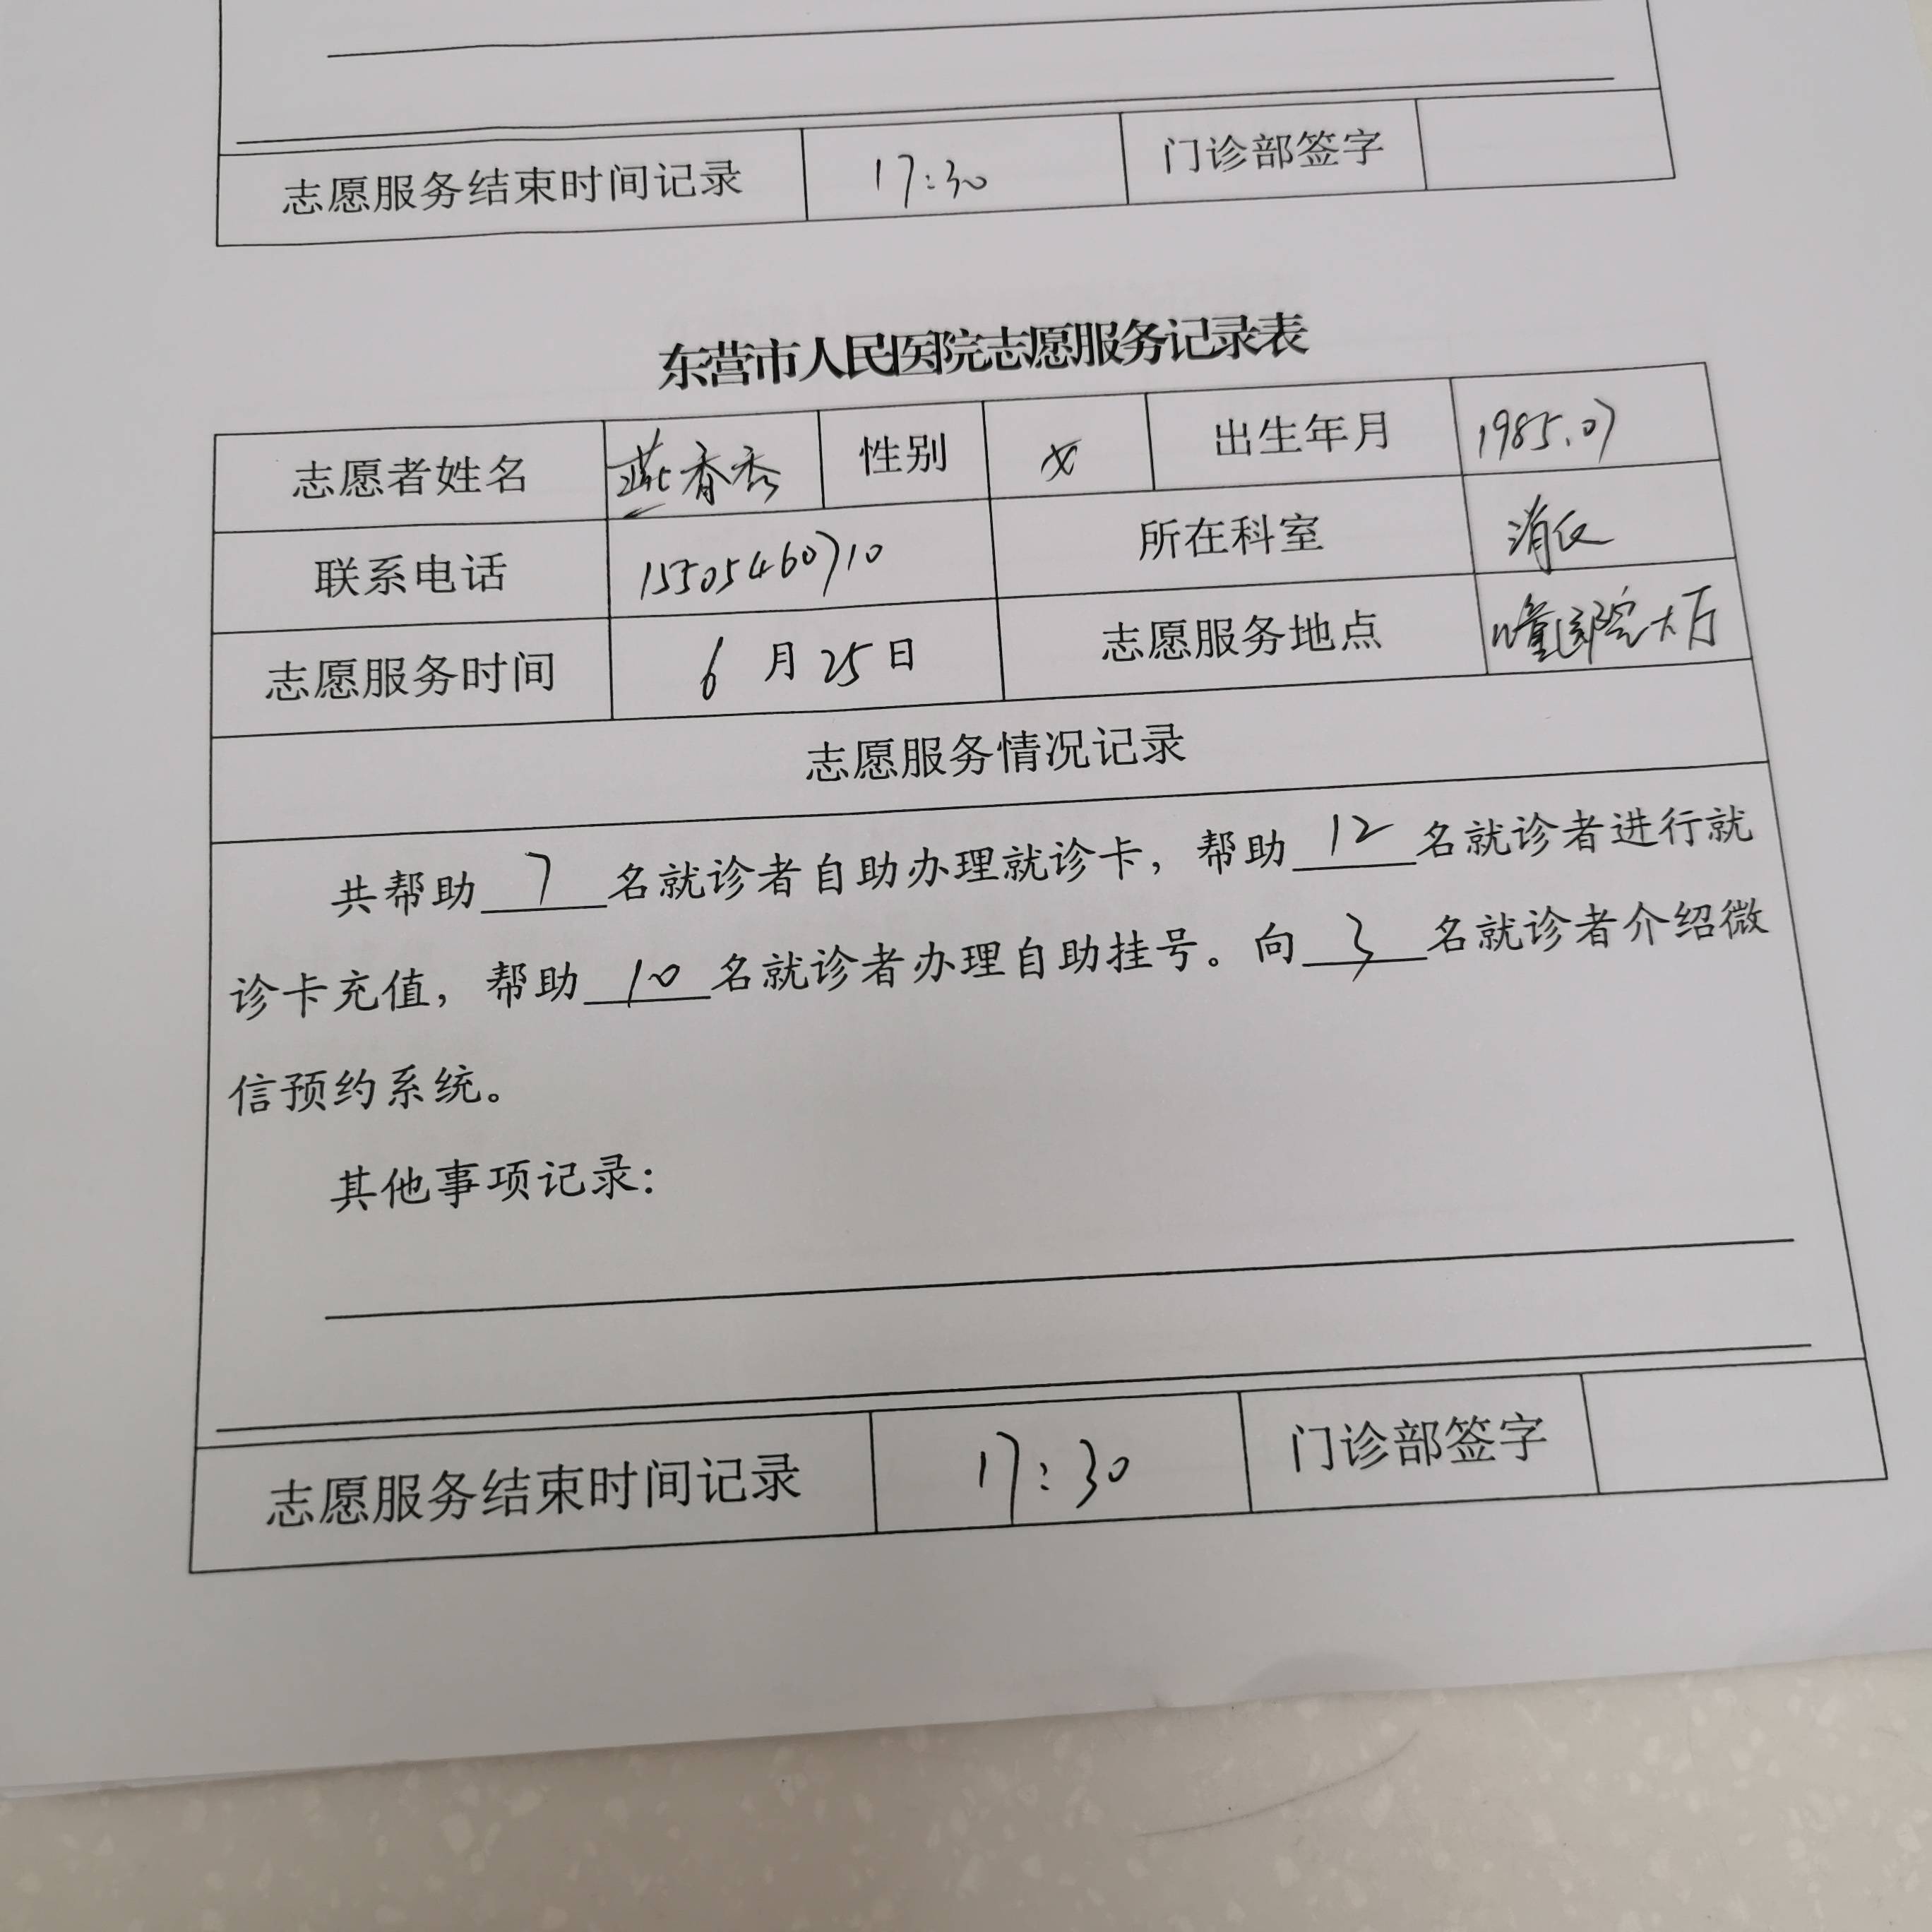 志愿服务结束时间记录 17:30 门诊部签字
东营市人民医院志愿服务记录表
志愿者姓名 燕香秀 性别 女 出生年月 1985.07
联系电话 15505460710 所在科室 消仪
志愿服务时间 6 月 25 日 志愿服务地点 儿童医院大厅
志愿服务情况记录
共帮助 7 名就诊者自助办理就诊卡，帮助 12 名就诊者进行就
诊卡充值，帮助 10 名就诊者办理自助挂号。向 3 名就诊者介绍微
信预约系统。
其他事项记录：
志愿服务结束时间记录 17:30 门诊部签字